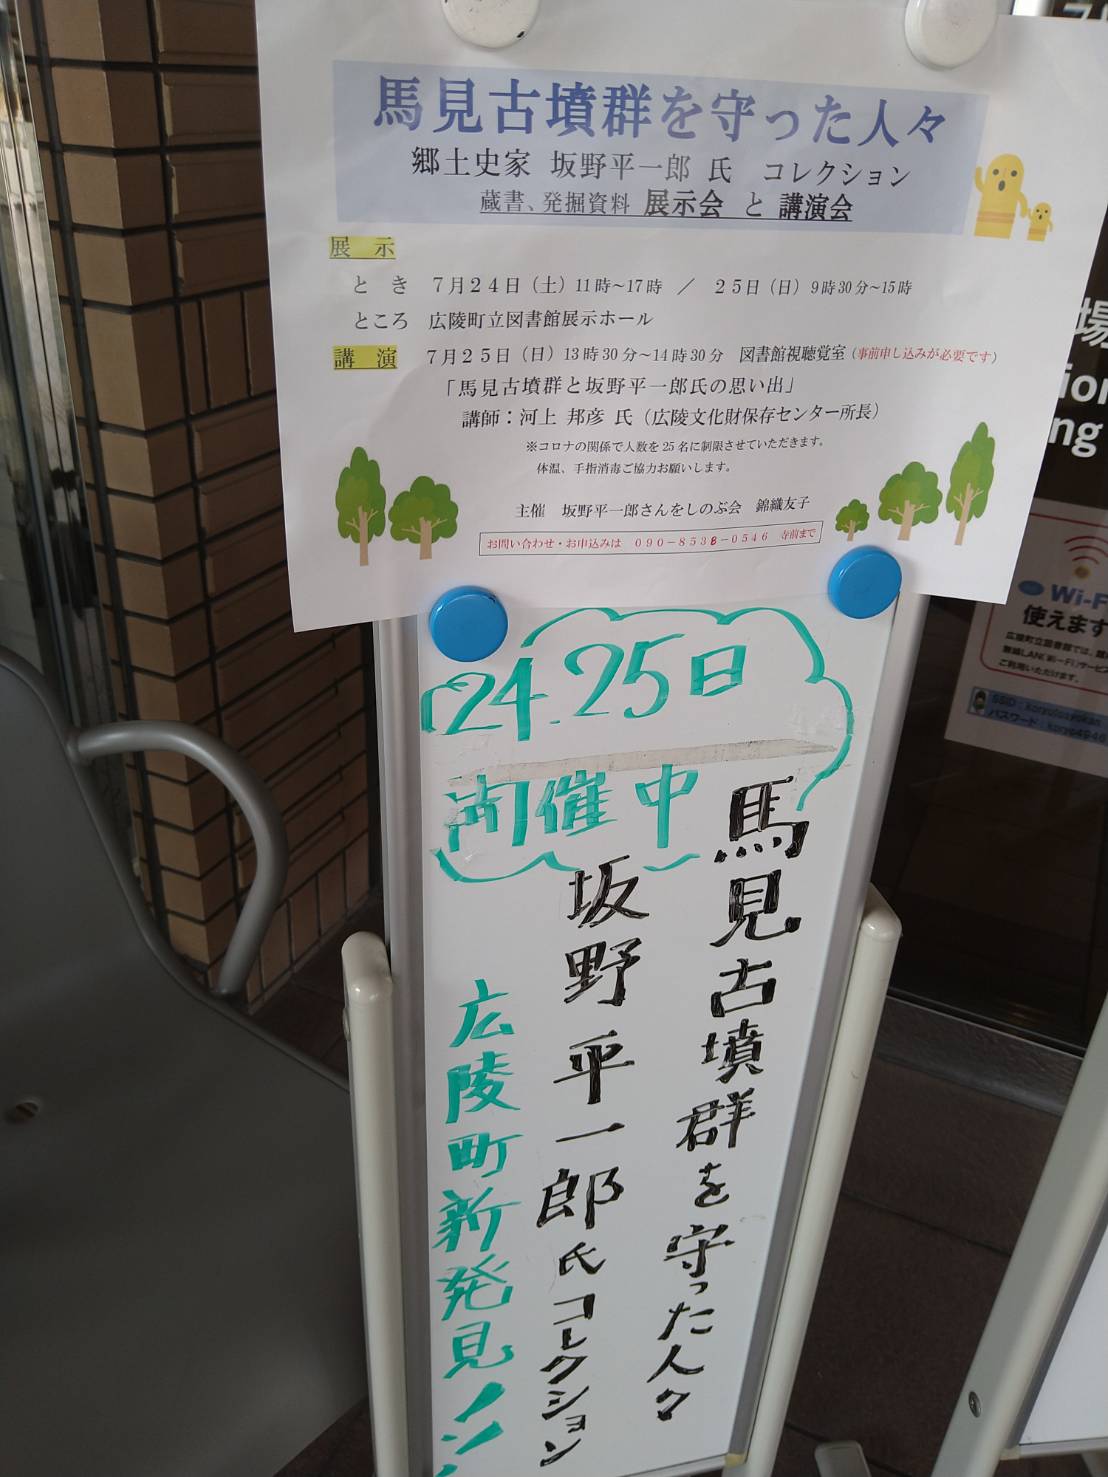 馬見古墳群を守った人々
郷土史家 坂野平一郎 氏 コレクション
蔵書、発掘資料 展示会 と 講演会
展 示
と き 7月24日(土)11時~17時 / 25日(日)9時30分~15時
ところ 広陵町立図書館展示ホール
講 演 7月25日(日)13時30分~14時30分 図書館視聴覚室(事前申し込みが必要です)
「馬見古墳群と坂野平一郎氏の思い出」
講師:河上 邦彦 氏(広陵文化財保存センター所長)
※コロナの関係で人数を25名に制限させていただきます。
体温、手指消毒ご協力お願いします。
主催 坂野平一郎さんをしのぶ会 錦織友子
お問い合わせ・お申込みは 090-8538-0546 寺前まで
24.25日
開催中
馬見古墳群を守った人々
坂野平一郎氏コレクション
広陵町新発見!!
場
ion
ng
Wi-F
使えます
広陵町立図書館では、
無線LAN(Wi-Fi)サービス
ご利用いただけます。
SSID:koryotosyokan
パスワード:koryo4946